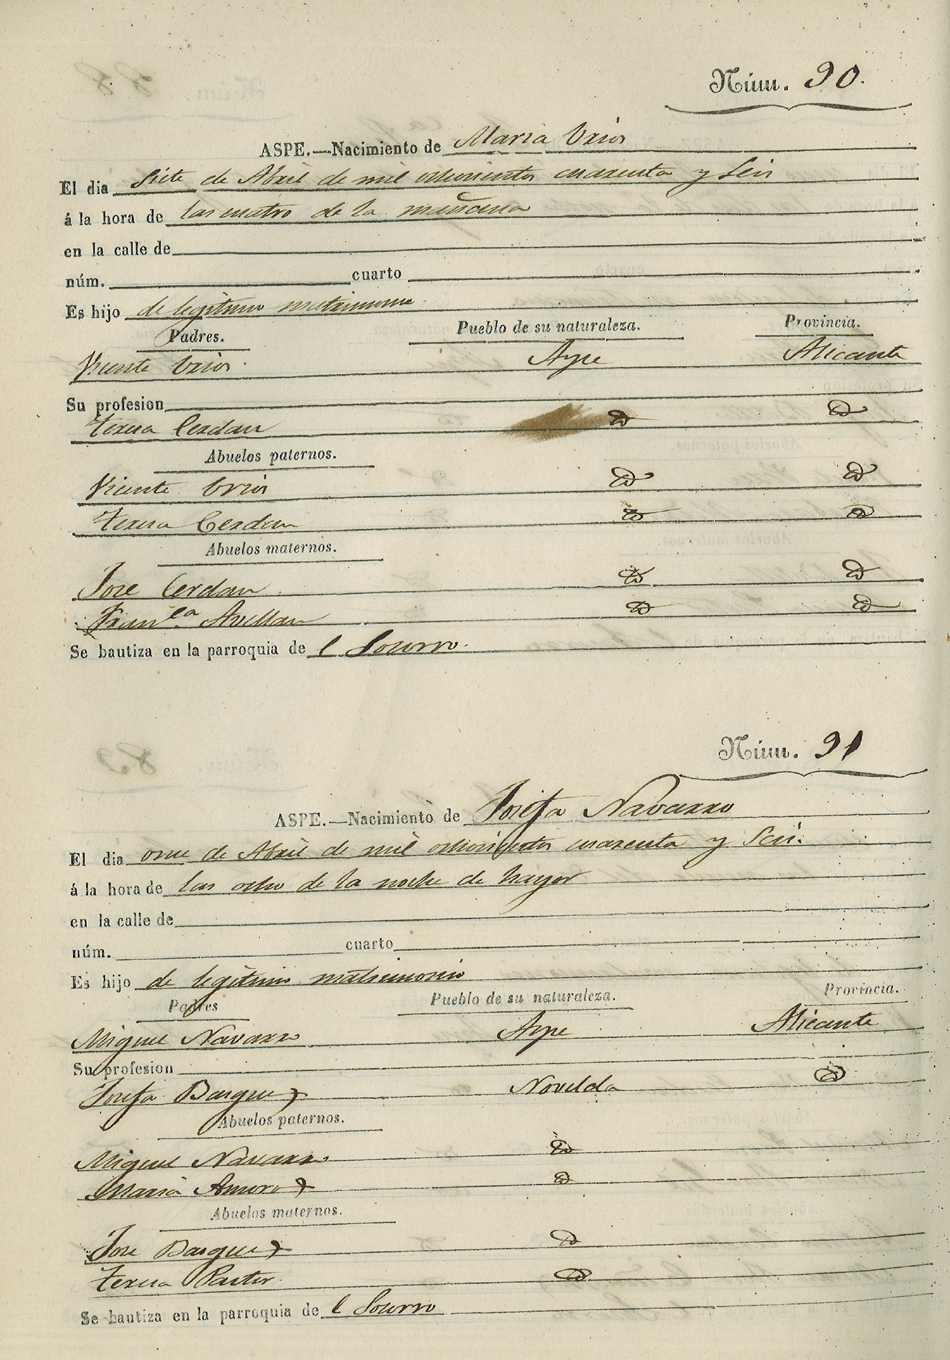 Núm. 90.
ASPE.—Nacimiento de Maria Vrios
El dia Siete de Abril de mil ochocientos cuarenta y Seis
á la hora de las cuatro de la mañana
en la calle de
núm. cuarto
Es hijo de legitimo matrimonio
Padres. Pueblo de su naturaleza. Provincia.
Vicente Vrios. Aspe Alicante
Su profesion
Teresa Cerdan
Abuelos paternos.
Vicente Vrios
Teresa Cerdan
Abuelos maternos.
Jose Cerdan
Franca Avellan
Se bautiza en la parroquia de l Socorro.
Núm. 91
ASPE.—Nacimiento de Josefa Navarro
El dia onse de Abril de mil ochocientos cuarenta y Seis.
á la hora de las ocho de la noche de hayer
en la calle de
núm. cuarto
Es hijo de legitimo matrimonio
Padres Pueblo de su naturaleza. Provincia.
Miguel Navarro Aspe Alicante
Su profesion
Josefa Novelda
Abuelos paternos.
Miguel Navarro
Maria Amoros
Abuelos maternos.
Jose
Teresa Pastor
Se bautiza en la parroquia de l Socorro